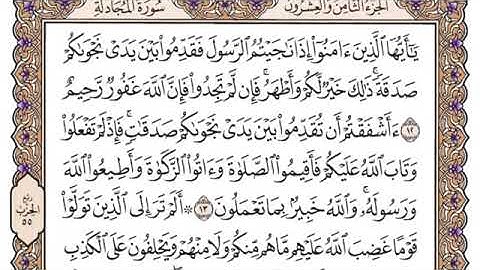 الجزء الثامن والعشرون سورة المجادلة
يَٰٓأَيُّهَا ٱلَّذِينَ ءَامَنُوٓا۟ إِذَا نَٰجَيْتُمُ ٱلرَّسُولَ فَقَدِّمُوا۟ بَيْنَ يَدَىْ نَجْوَىٰكُمْ
صَدَقَةً ۚ ذَٰلِكَ خَيْرٌ لَّكُمْ وَأَطْهَرُ ۚ فَإِن لَّمْ تَجِدُوا۟ فَإِنَّ ٱللَّهَ غَفُورٌ رَّحِيمٌ
١٢ ءَأَشْفَقْتُمْ أَن تُقَدِّمُوا۟ بَيْنَ يَدَىْ نَجْوَىٰكُمْ صَدَقَٰتٍ ۚ فَإِذْ لَمْ تَفْعَلُوا۟
وَتَابَ ٱللَّهُ عَلَيْكُمْ فَأَقِيمُوا۟ ٱلصَّلَوٰةَ وَءَاتُوا۟ ٱلزَّكَوٰةَ وَأَطِيعُوا۟ ٱللَّهَ
وَرَسُولَهُۥ ۚ وَٱللَّهُ خَبِيرٌۢ بِمَا تَعْمَلُونَ ١٣ ۞ أَلَمْ تَرَ إِلَى ٱلَّذِينَ تَوَلَّوْا۟
قَوْمًا غَضِبَ ٱللَّهُ عَلَيْهِم مَّا هُم مِّنكُمْ وَلَا مِنْهُمْ وَيَحْلِفُونَ عَلَى ٱلْكَذِبِ
ربع
الحزب
٥٥